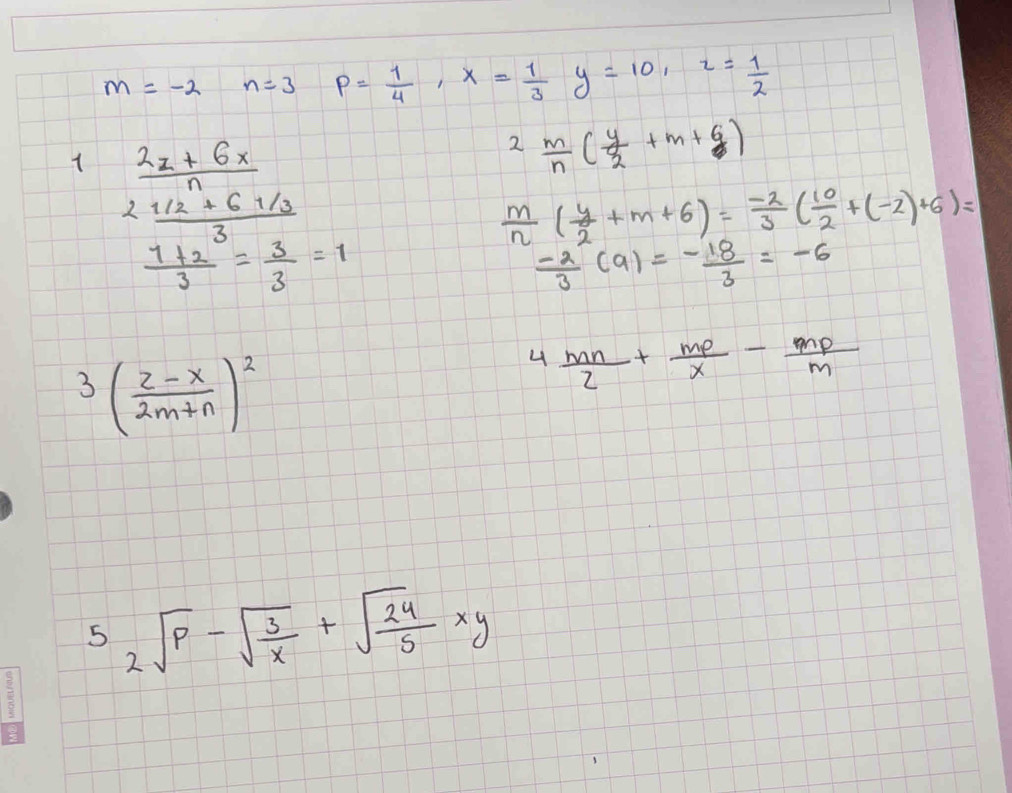 m = -2 n=3 p= 1/4 , x = 1/3 y = 10, z = 1/2
1 (2z + 6x)/n
(2 1/2 + 6 1/3)/3
(1+2)/3 = 3/3 = 1
2 m/n (y/2 + m + 6)
m/n (y/2 + m + 6) = -2/3 (10/2 + (-2) + 6) =
-2/3 (9) = -18/3 = -6
3 ((z - x)/(2m+n))^2
4 mn/z + mp/x - mp/m
5 2√p - √(3/x) + √(24/5) xy